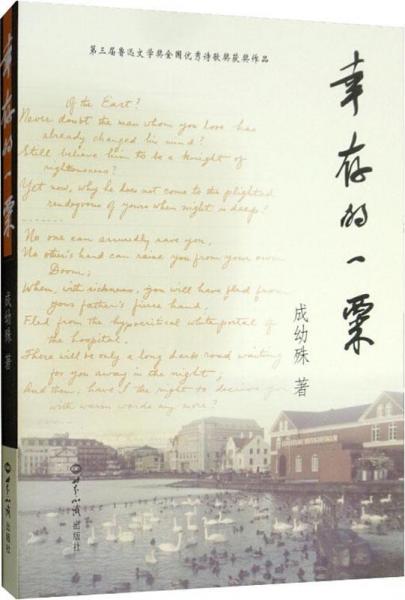 第三届鲁迅文学奖全国优秀诗歌奖获奖作品
幸存的一粟
成幼殊 著
Of the East?
Never doubt the man whom you love has
already changed his mind?
Still believe him to be a knight of
righteousness?
Yet now, why he does not come to the plighted
rendezvous of yours when night is deep?
......
No one can assuredly save you,
No other's hand can raise you from your own
Doom;
When, with sickness, you will have fled from
your father's fierce hand,
Fled from the hypocritical white portal of
the hospital.
There will be only a long dark road waiting
for you away in the night,
And then, have I the right to deceive you
with warm words any more?
世界知识出版社
幸存的一粟
成幼殊 著
世界知识出版社